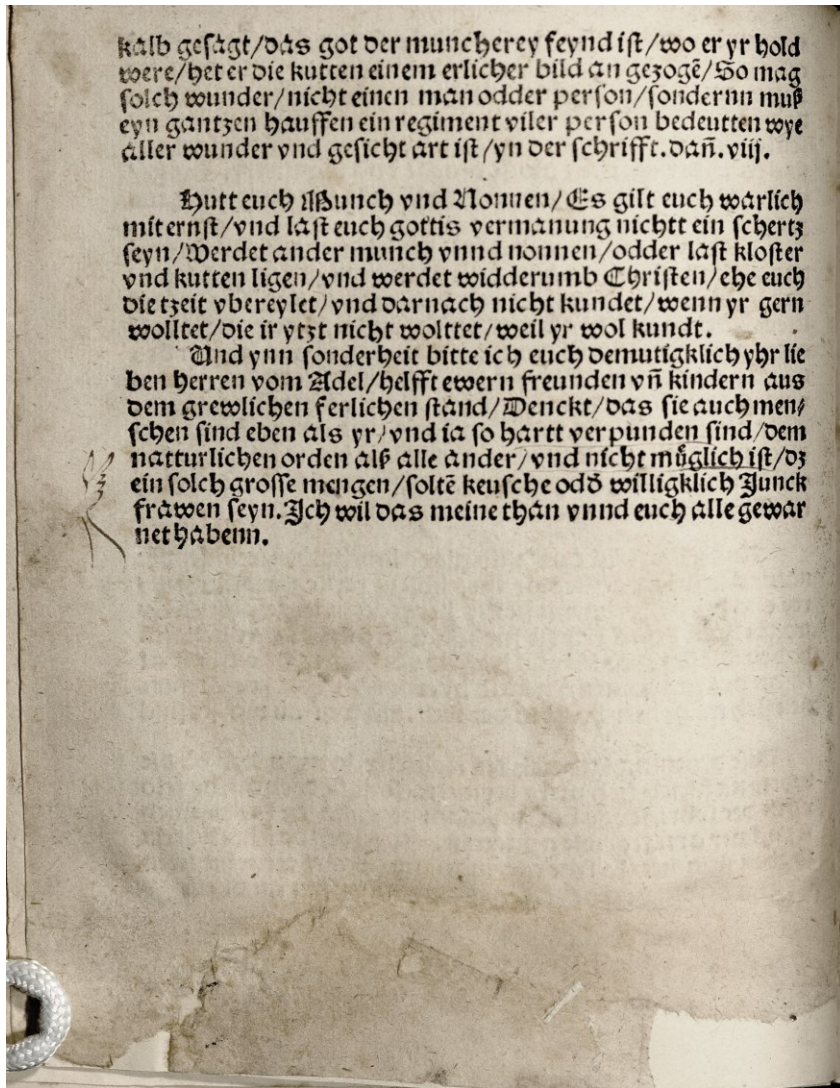 kalb gesagt/das got der muncherey feynd ist/wo er yr hold
were/het er die kutten einem erlicher bild an gezogē/So mag
solch wunder/nicht einen man odder person/sondernn muß
eyn gantzen hauffen ein regiment viler person bedeutten wye
aller wunder vnd gesicht art ist/yn der schrifft.dan̄.viij.
Hutt euch Munch vnd Nonnen/Es gilt euch warlich
mit ernst/vnd last euch gottis vermanung nichtt ein schertz
seyn/Werdet ander munch vnnd nonnen/odder last kloster
vnd kutten ligen/vnd werdet widderumb Christen/ehe euch
die tzeit vbereylet/vnd darnach nicht kundet/wenn yr gern
wolltet/die ir ytzt nicht wolttet/weil yr wol kundt.
Und ynn sonderheit bitte ich euch demutigklich yhr lie
ben herren vom Adel/helfft ewern freunden vn̄ kindern aus
dem grewlichen ferlichen stand/Denckt/das sie auch men/
schen sind eben als yr/vnd ia so hartt verpunden sind/dem
natturlichen orden alß alle ander/vnd nicht můglich ist/dz
ein solch grosse mengen/soltē keusche odd̄ willigklich Junck
frawen seyn.Ich wil das meine than vnnd euch alle gewar
net habenn.